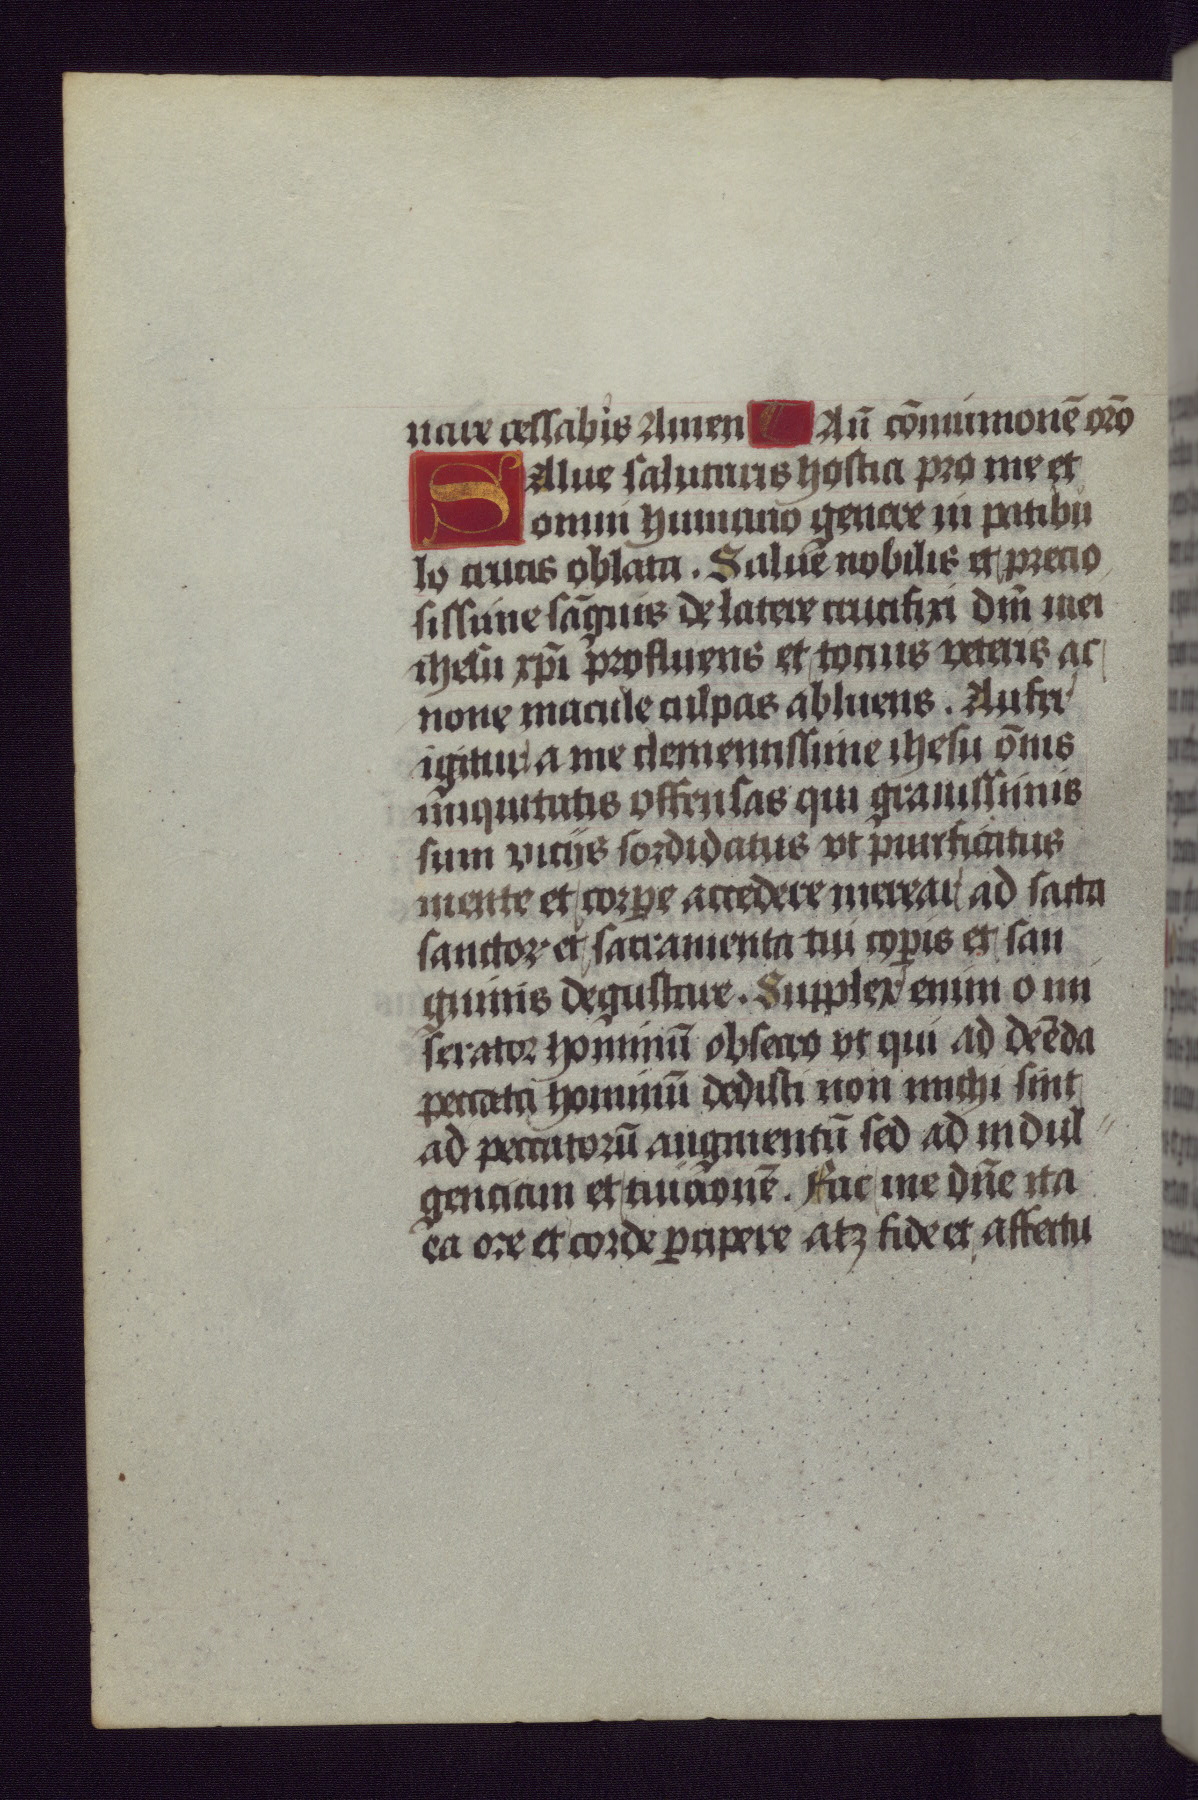 nare cessabis Amen ¶ An̄ cōmunionē or̄o
SAlue salutaris hostia pro me et
omni humano genere in patibu
lo crucis oblata. Salue nobilis et precio
sissime sāguis de latere crucifixi dn̄i mei
ihesu xp̄i profluens et tocius veteris ac
noue macule culpas abluens. Aufer
igitur a me clementissime ihesu ōnis
iniquitatis offensas qui grauissimis
sum viciis sordidatus vt purificatus
mente et corpe accedere merear ad sancta
sanctoꝝ et sacramenta tui coꝑis et san
guinis degustare. Supplex enim o mi
serator hominū obsecro vt qui ad delēda
peccata hominū dedisti non michi sint
ad peccatorū augmentū sed ad indul
genciam et tuicionē. Fac me dn̄e ita
ea ore et corde ꝑcipere atqꝫ fide et affectu